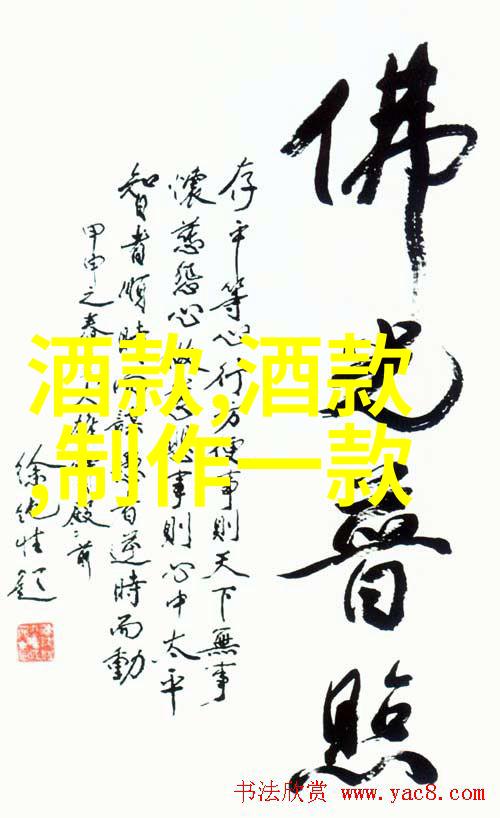 佛光普照
存平等心行方便事則天下無事
懷慈悲心做慈悲事則心中太平
智者順時而謀愚者逆時而動
甲申之春大雄殿前
徐題
酒款,酒款
,制作一款
书法欣赏 www.yac8.com